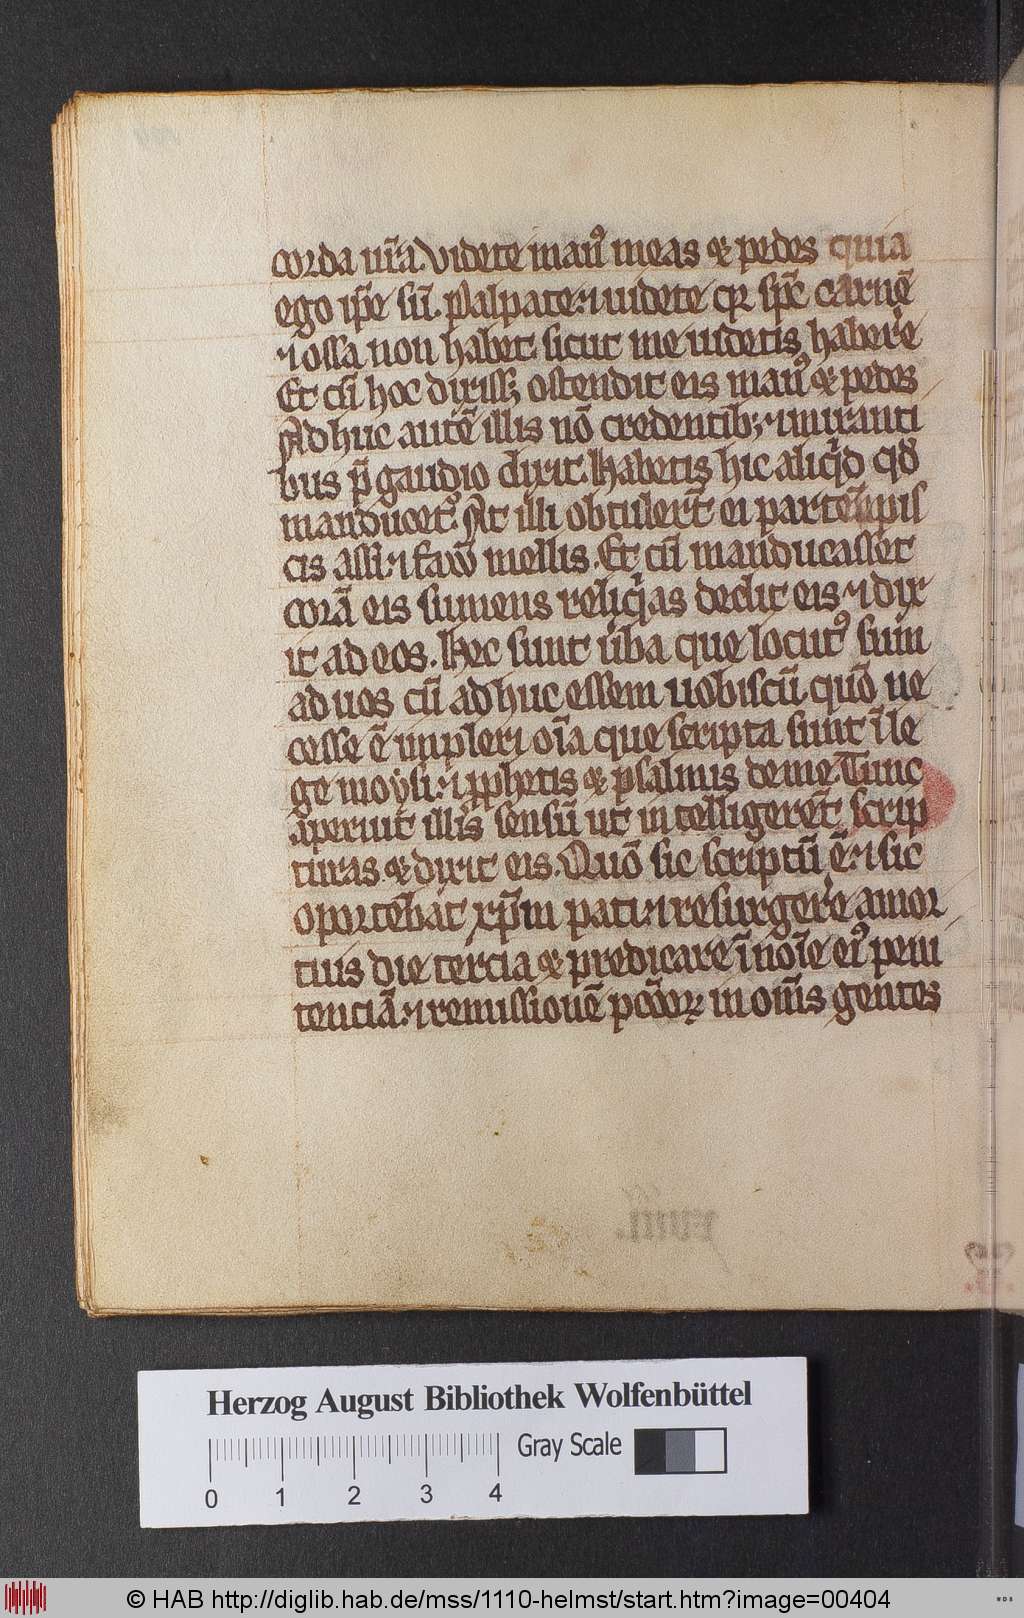 corda ur̄a. Videte manꝰ meas & pedes quia
ego ip̄e sū. Palpate: ⁊ uidete qꝛ sp̄c carnē
⁊ ossa non habet. sicut me uidetis habere
Et cū hoc dixissꝫ ostendit eis manꝰ & pedes
Ad huc autē illis nō credentibꝫ. ⁊ miranti
bus p̄ gaudio dixit. Habetis hic aliqͥd qđ
manducetꝰ. At illi obtuler̄t ei partē pis
cis assi: ⁊ fauū mellis. Et cū manducasset
corā eis sumens reliqͥas dedit eis ⁊ dix
it ad eos. Hec sunt ūba que locutꝰ sum
ad uos cū ad huc essem uobiscū. quō ne
cesse ē impleri oīa que scripta sunt ī le
ge moysi: ⁊ ꝓphetis & psalmis de me. Tunc
aperuit illis sensū ut intelligerēt scrip
turas & dixit eis. Quō sic scriptū ē: ⁊ sic
oportebat xp̄m pati: ⁊ resurgere a mor
tuis die tercia & predicare ī noīe eiꝰ peni
tenciā: ⁊ remissionē pc̄cōꝝ in om̄s gentes
Herzog August Bibliothek Wolfenbüttel
Gray Scale
0 1 2 3 4
© HAB http://diglib.hab.de/mss/1110-helmst/start.htm?image=00404